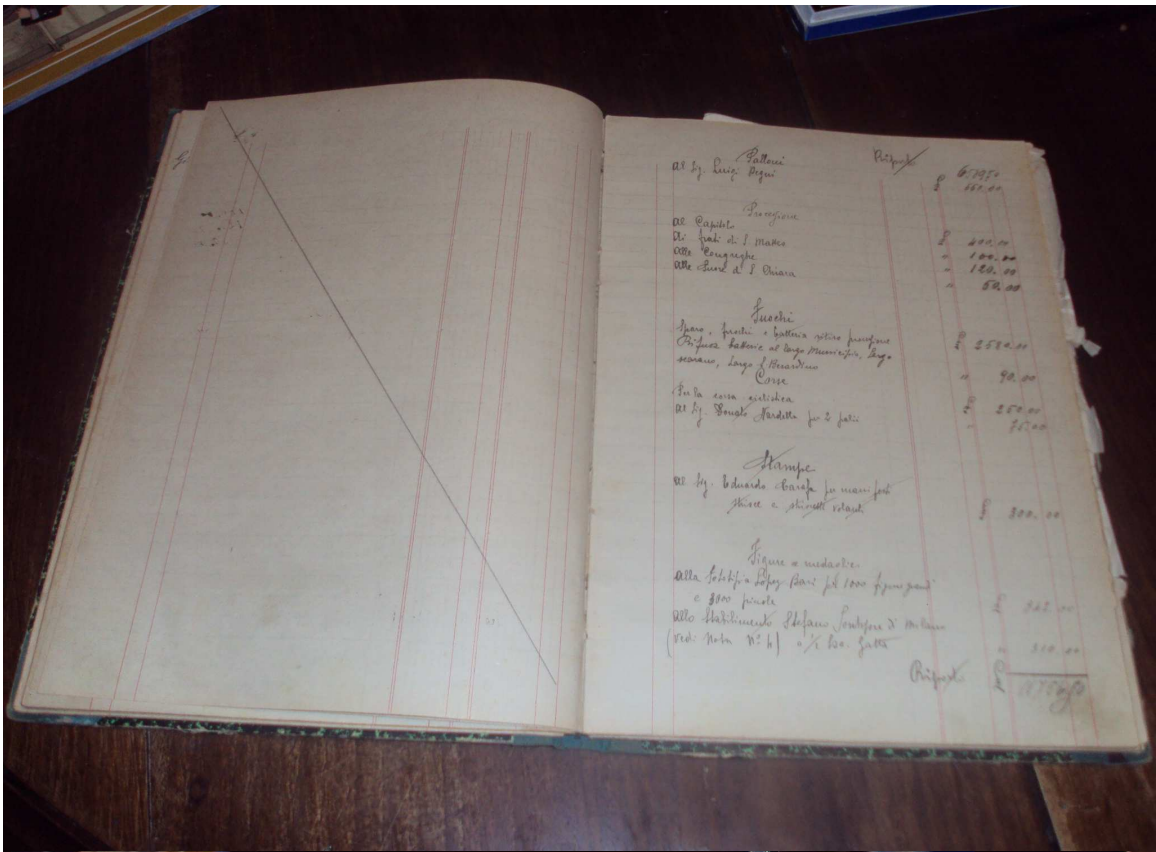 Palloni Riporto
Al Sig. Luigi 550.00
Processione
Al Capitolo £ 400.00
Ai frati di S. Marco " 100.00
Alle Congreghe " 120.00
Alle Suore di S. Chiara " 50.00
Fuochi
Sparo, fuochi e batteria ritiro processione £ 2580.00
batterie al largo Municipio, largo
largo S. Bernardino " 90.00
Corse
Per la corsa ciclistica £ 250.00
Al Sig. Donato Nardella per 2 palii " 75.00
Stampe
Al Sig. Eduardo Carafa per manifesti
strisce e striscetti volanti £ 300.00
Figure e medaglie
Alla Fototipia Lopez Bari per 1000 figure grandi
e 3000 piccole
Allo Stabilimento Stefano di Milano
(vedi Nota N° 4)
Riporto £